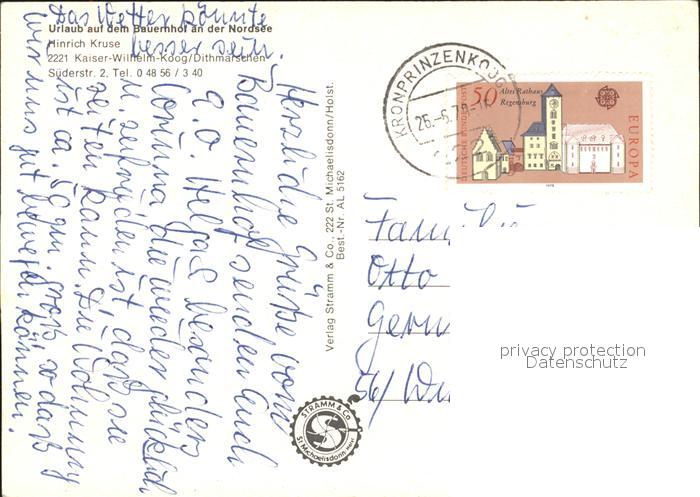 Das Wetter könnte
besser sein.
Urlaub auf dem Bauernhof an der Nordsee
Hinrich Kruse
2221 Kaiser-Wilhelm-Koog/Dithmarschen
Süderstr. 2, Tel. 0 48 56 / 3 40
Herzliche Grüße vom
Bauernhof senden Euch
a.o. Helga besonders
Corinna die wieder glücklich
u. zufrieden ist das sie
reiten kann. Die Wohnung
ist ca. 50 qm. groß so daß
wir uns gut bewegen können.
Verlag Stramm & Co., 222 St. Michaelisdonn/Holst.
Best.-Nr. AL 5162
STRAMM & Co
St Michaelisdonn
KRONPRINZENKOOG
26.-6.78
50
Altes Rathaus
Regensburg
DEUTSCHE BUNDESPOST
EUROPA
CEPT
1978
Familie
Otto
56/ Wu
privacy protection
Datenschutz